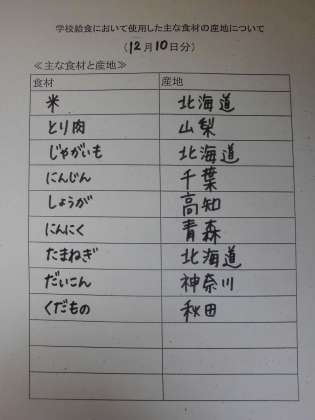 学校給食において使用した主な食材の産地について
(12月10日分)
≪主な食材と産地≫
食材 産地
米 北海道
とり肉 山梨
じゃがいも 北海道
にんじん 千葉
しょうが 高知
にんにく 青森
たまねぎ 北海道
だいこん 神奈川
くだもの 秋田